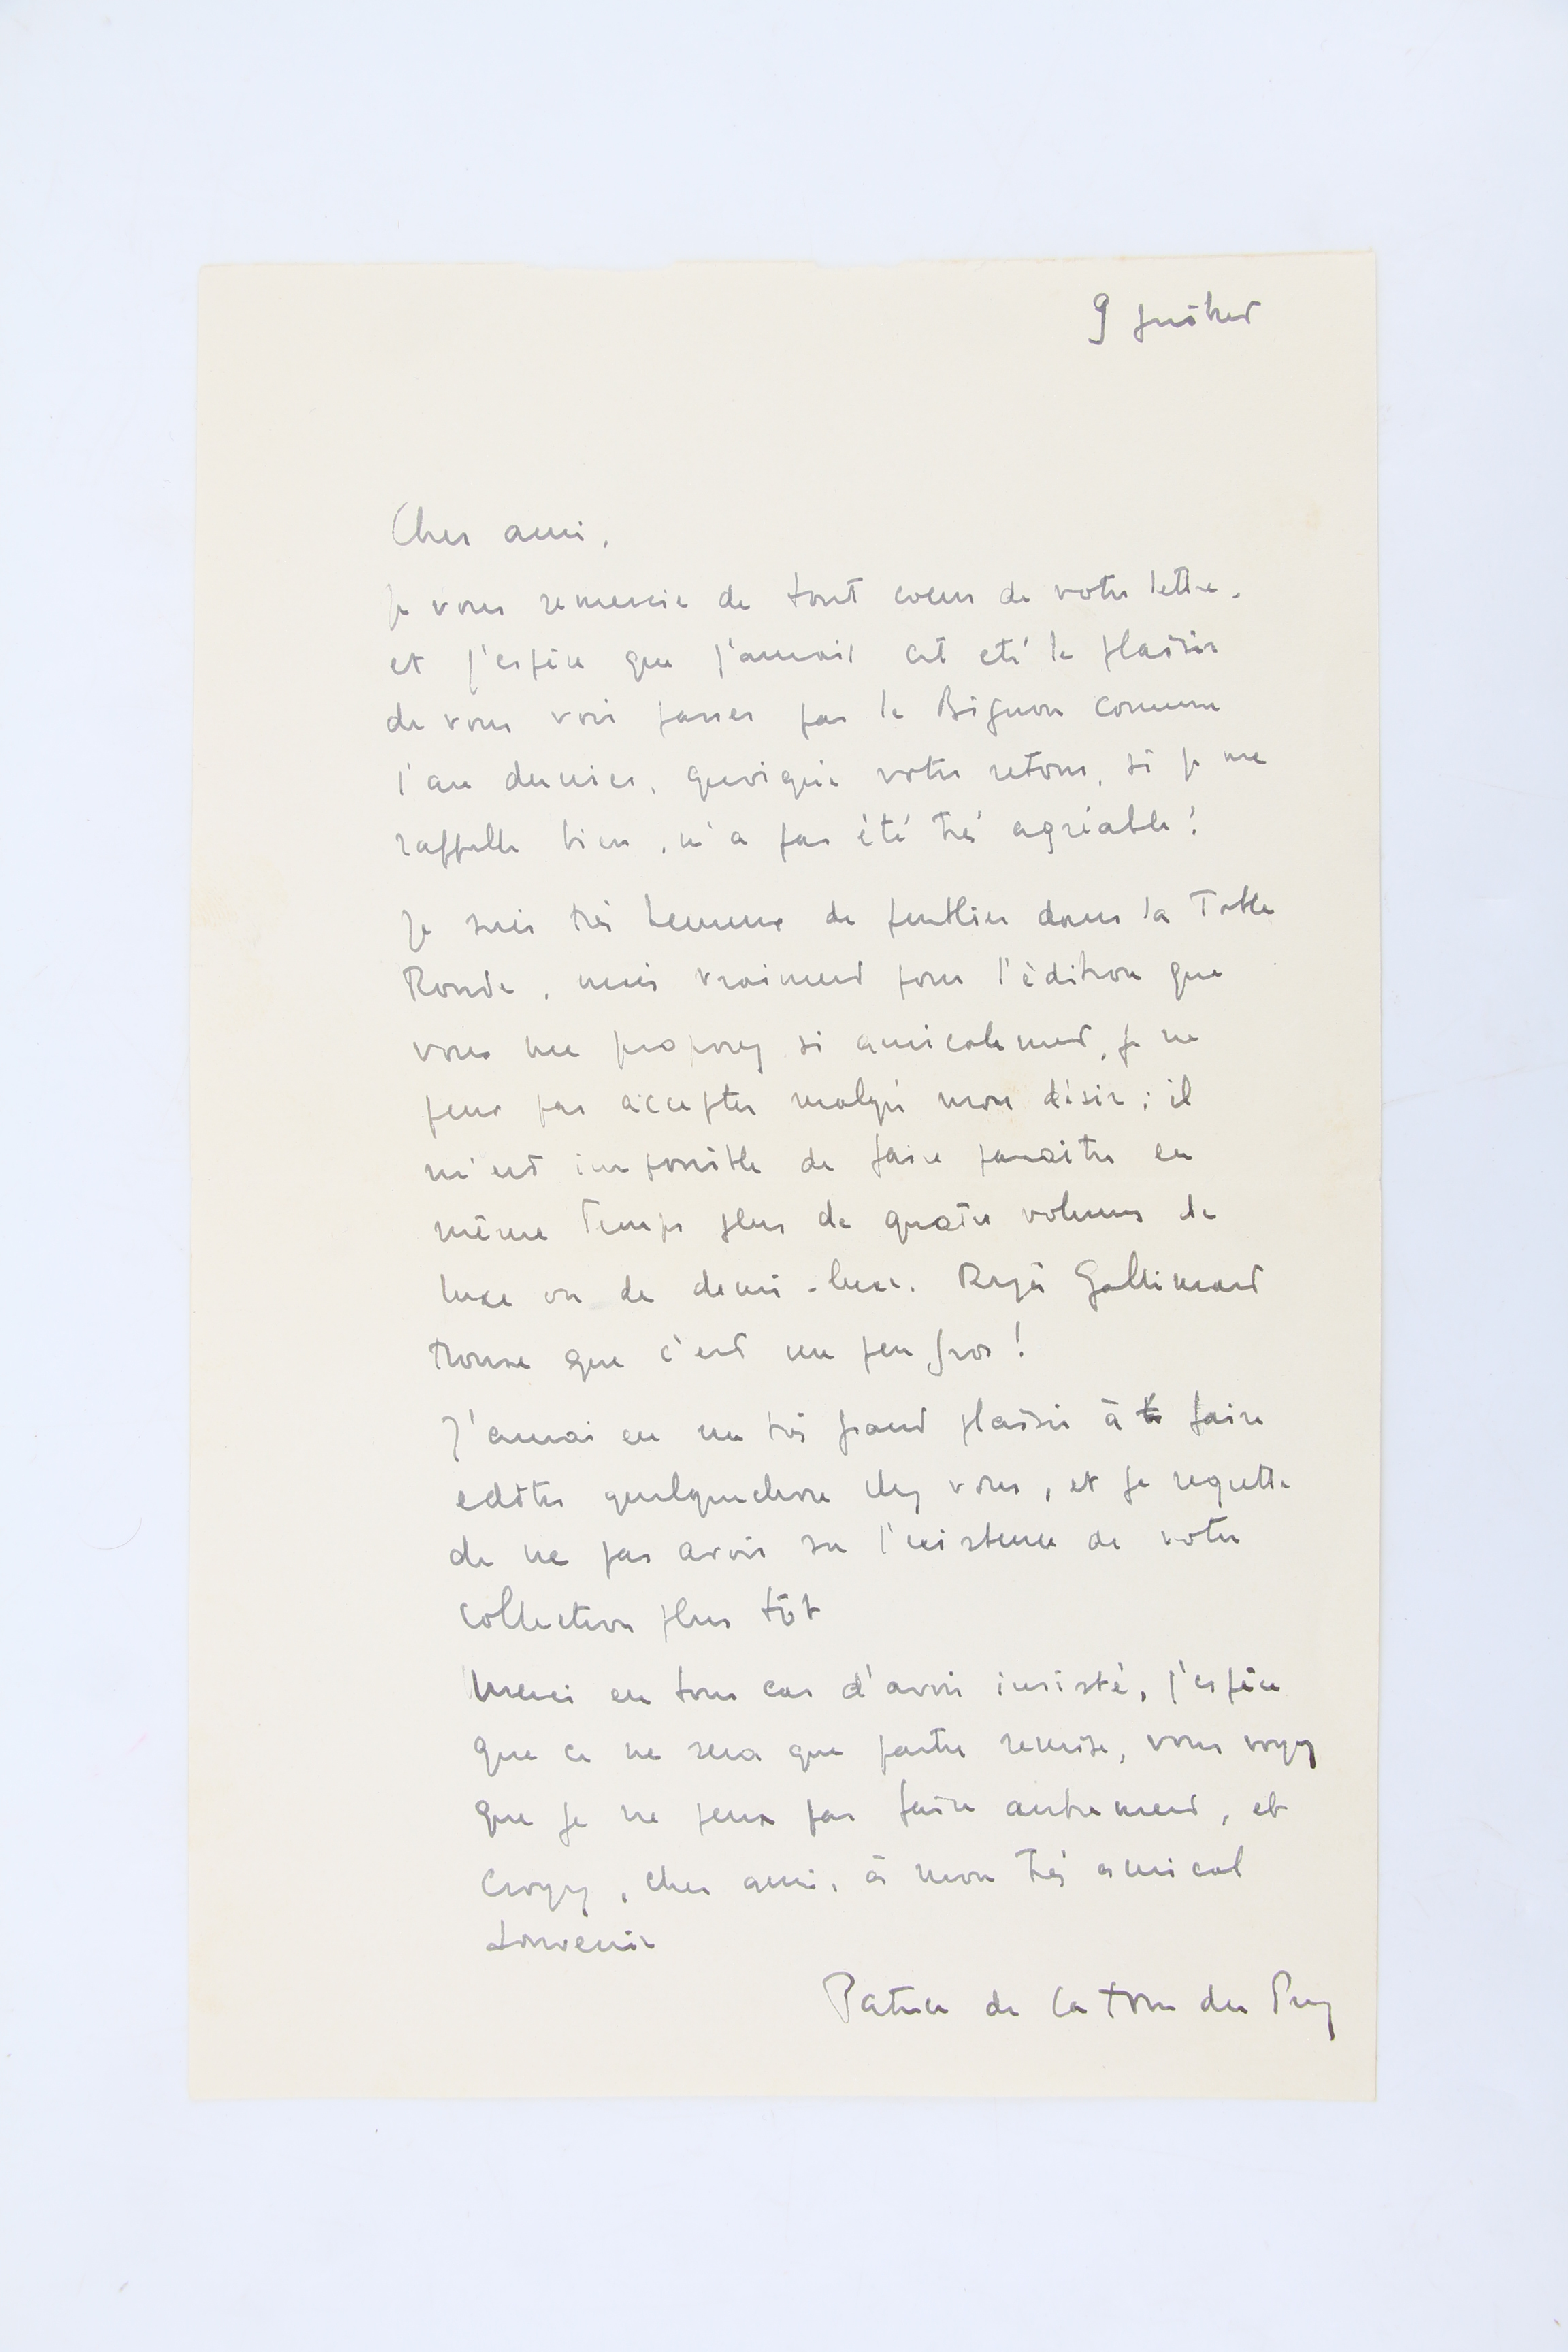 9 juillet
Cher ami,
je vous remercie de tout coeur de votre lettre,
et j'espère que j'aurai cet été le plaisir
de vous voir passer par le Bignon comme
l'an dernier, quoique votre retour, si je me
rappelle bien, n'a pas été très agréable !
Je suis très heureux de publier dans la Table
Ronde, mais vraiment pour l'édition que
vous me proposez si amicalement, je ne
peux pas accepter malgré mon désir ; il
m'est impossible de faire paraître en
même temps plus de quatre volumes de
luxe ou de demi-luxe. Déjà Gallimard
trouve que c'est un peu gros !
J'aurai eu un très grand plaisir à faire
editer quelquechose chez vous, et je regrette
de ne pas avoir su l'existence de votre
collection plus tôt
Merci en tous cas d'avoir insisté, j'espère
que ce ne sera que partie remise, vous voyez
que je ne peux pas faire autrement, et
croyez, cher ami, à mon très amical
souvenir
Patrice de la Tour du Pin